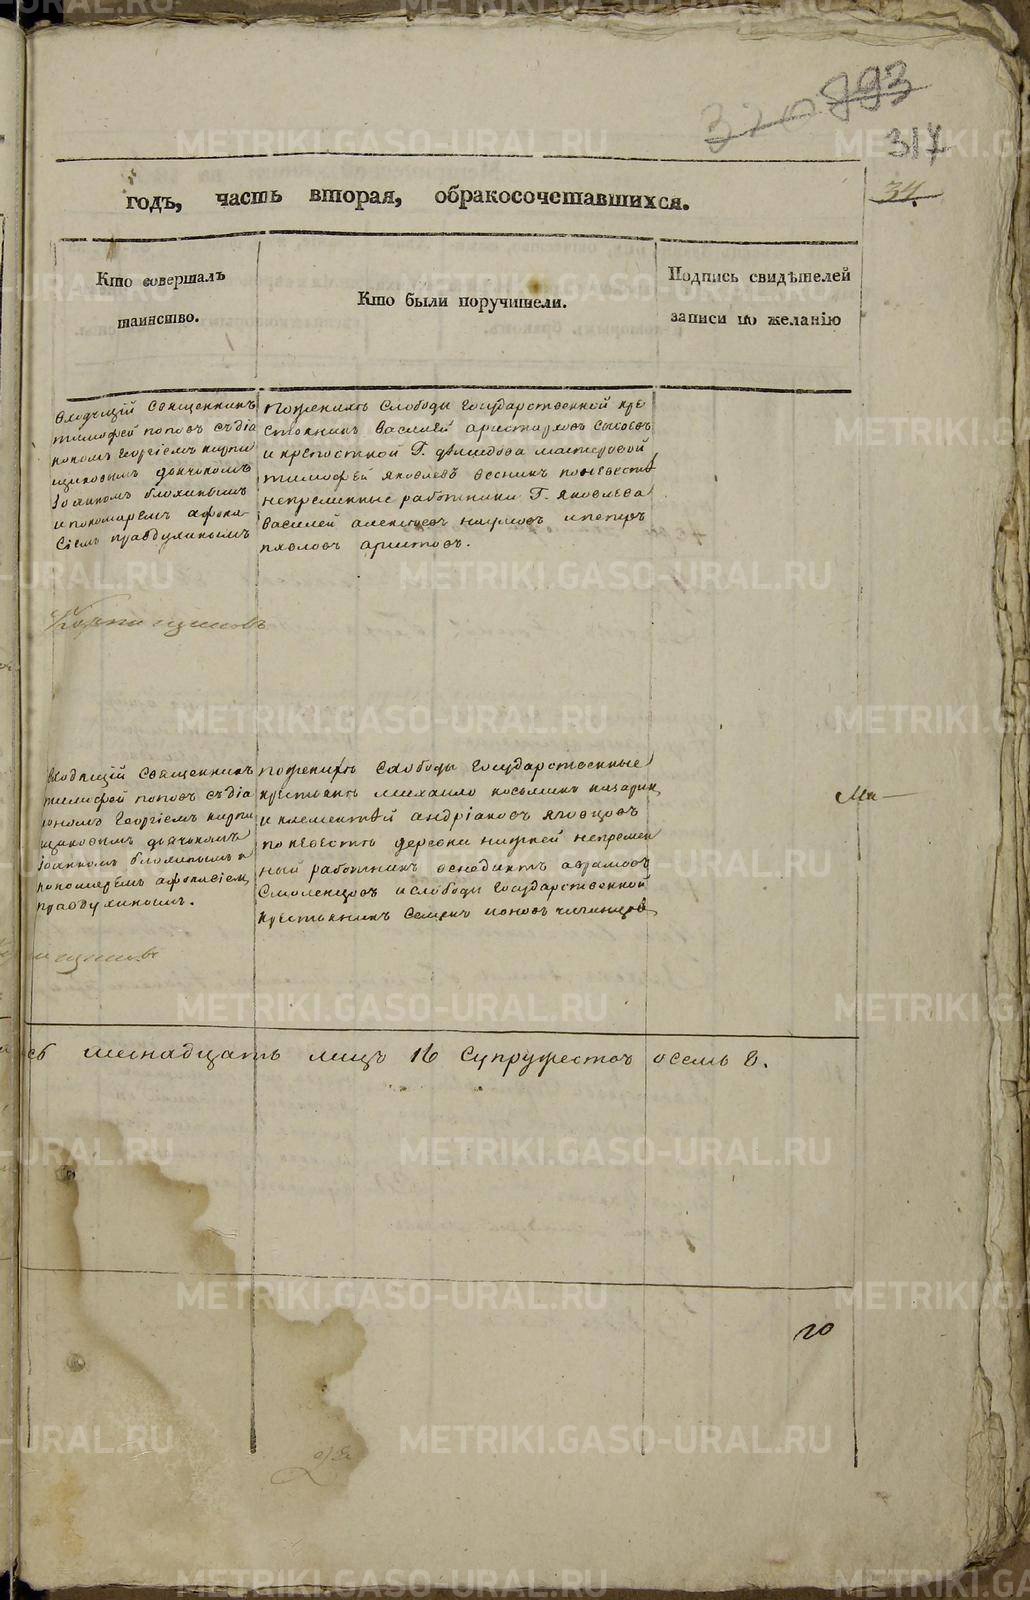 320 893
317
34.
годъ, часть вторая, обракосочетавшихся.
Кто совершалъ
таинство.
Кто были поручители.
Подпись свидѣтелей
записи по желанію
Входящій священникъ
тимофей поповъ съ діа
кономъ Георгіемъ кирпи
щиковымъ дьячкомъ
Іоанномъ блохинымъ
и пономаремъ афона
сіемъ правдухинымъ
Поженихѣ Слободы Государственной кре
стьянинъ Василей аристарховъ Сысоевъ
и крепостной Г. демидова мастеровой
тимофей Яковлевъ поневесте
непременные работники Г. Яковлева
Василей алексеевъ наумовъ и петеръ
павловъ аристовъ.
Кирпищиковъ
Входящій Священникъ
тимофей поповъ съ діа
кономъ Георгіемъ кирпи
щиковымъ дьячкомъ
Іоанномъ блохинымъ и
пономаремъ афонасіем
правдухиным.
поженихѣ Слободы Государственные
крестьянѣ михаило косьминъ
и клементей андріановъ
по невестѣ деревни нижней непремен
ный работникъ венедиктъ аврамовъ
Смоленцовъ и слободы Государственной
крестьянинъ Семенъ
щиковъ
Ми
шестнадцать лицъ 16 Супружествъ осемь 8.
20
METRIKI.GASO-URAL.RU